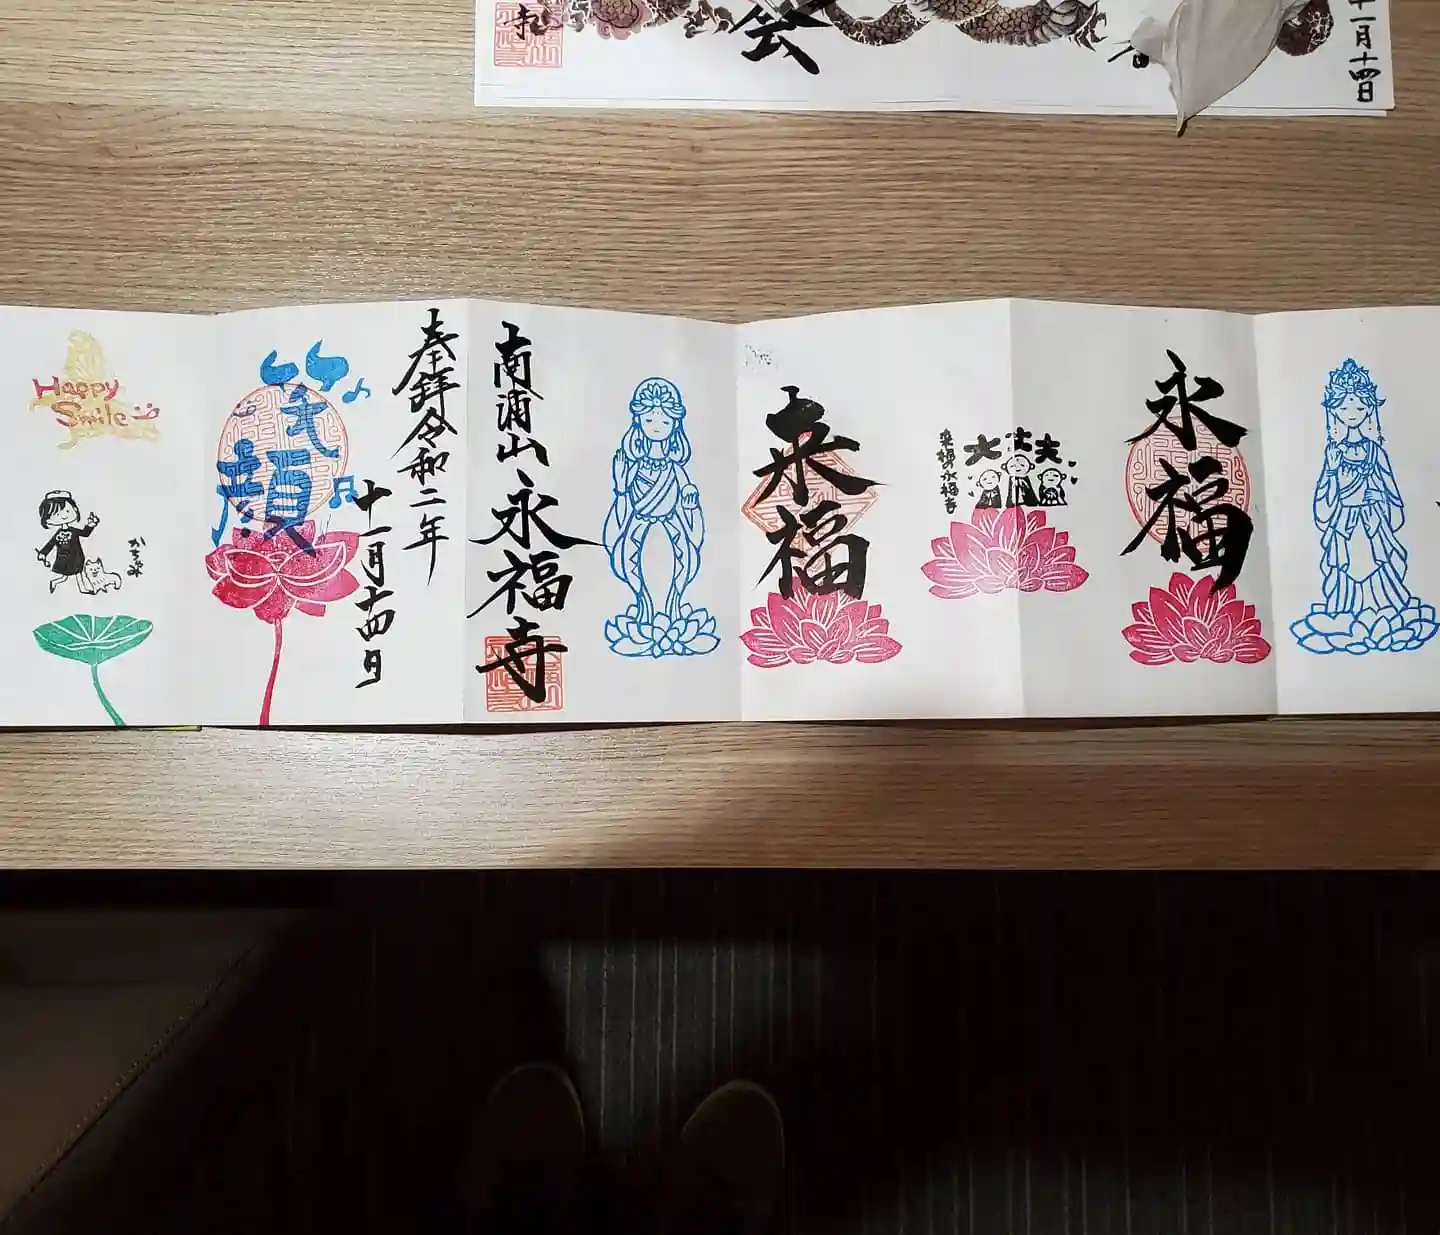 寺
会
十一月十四日
Happy
Smile
笑顔
奉拝令和二年
十一月十四日
南浦山永福寺
来福
来福の永福寺
大丈夫
永福